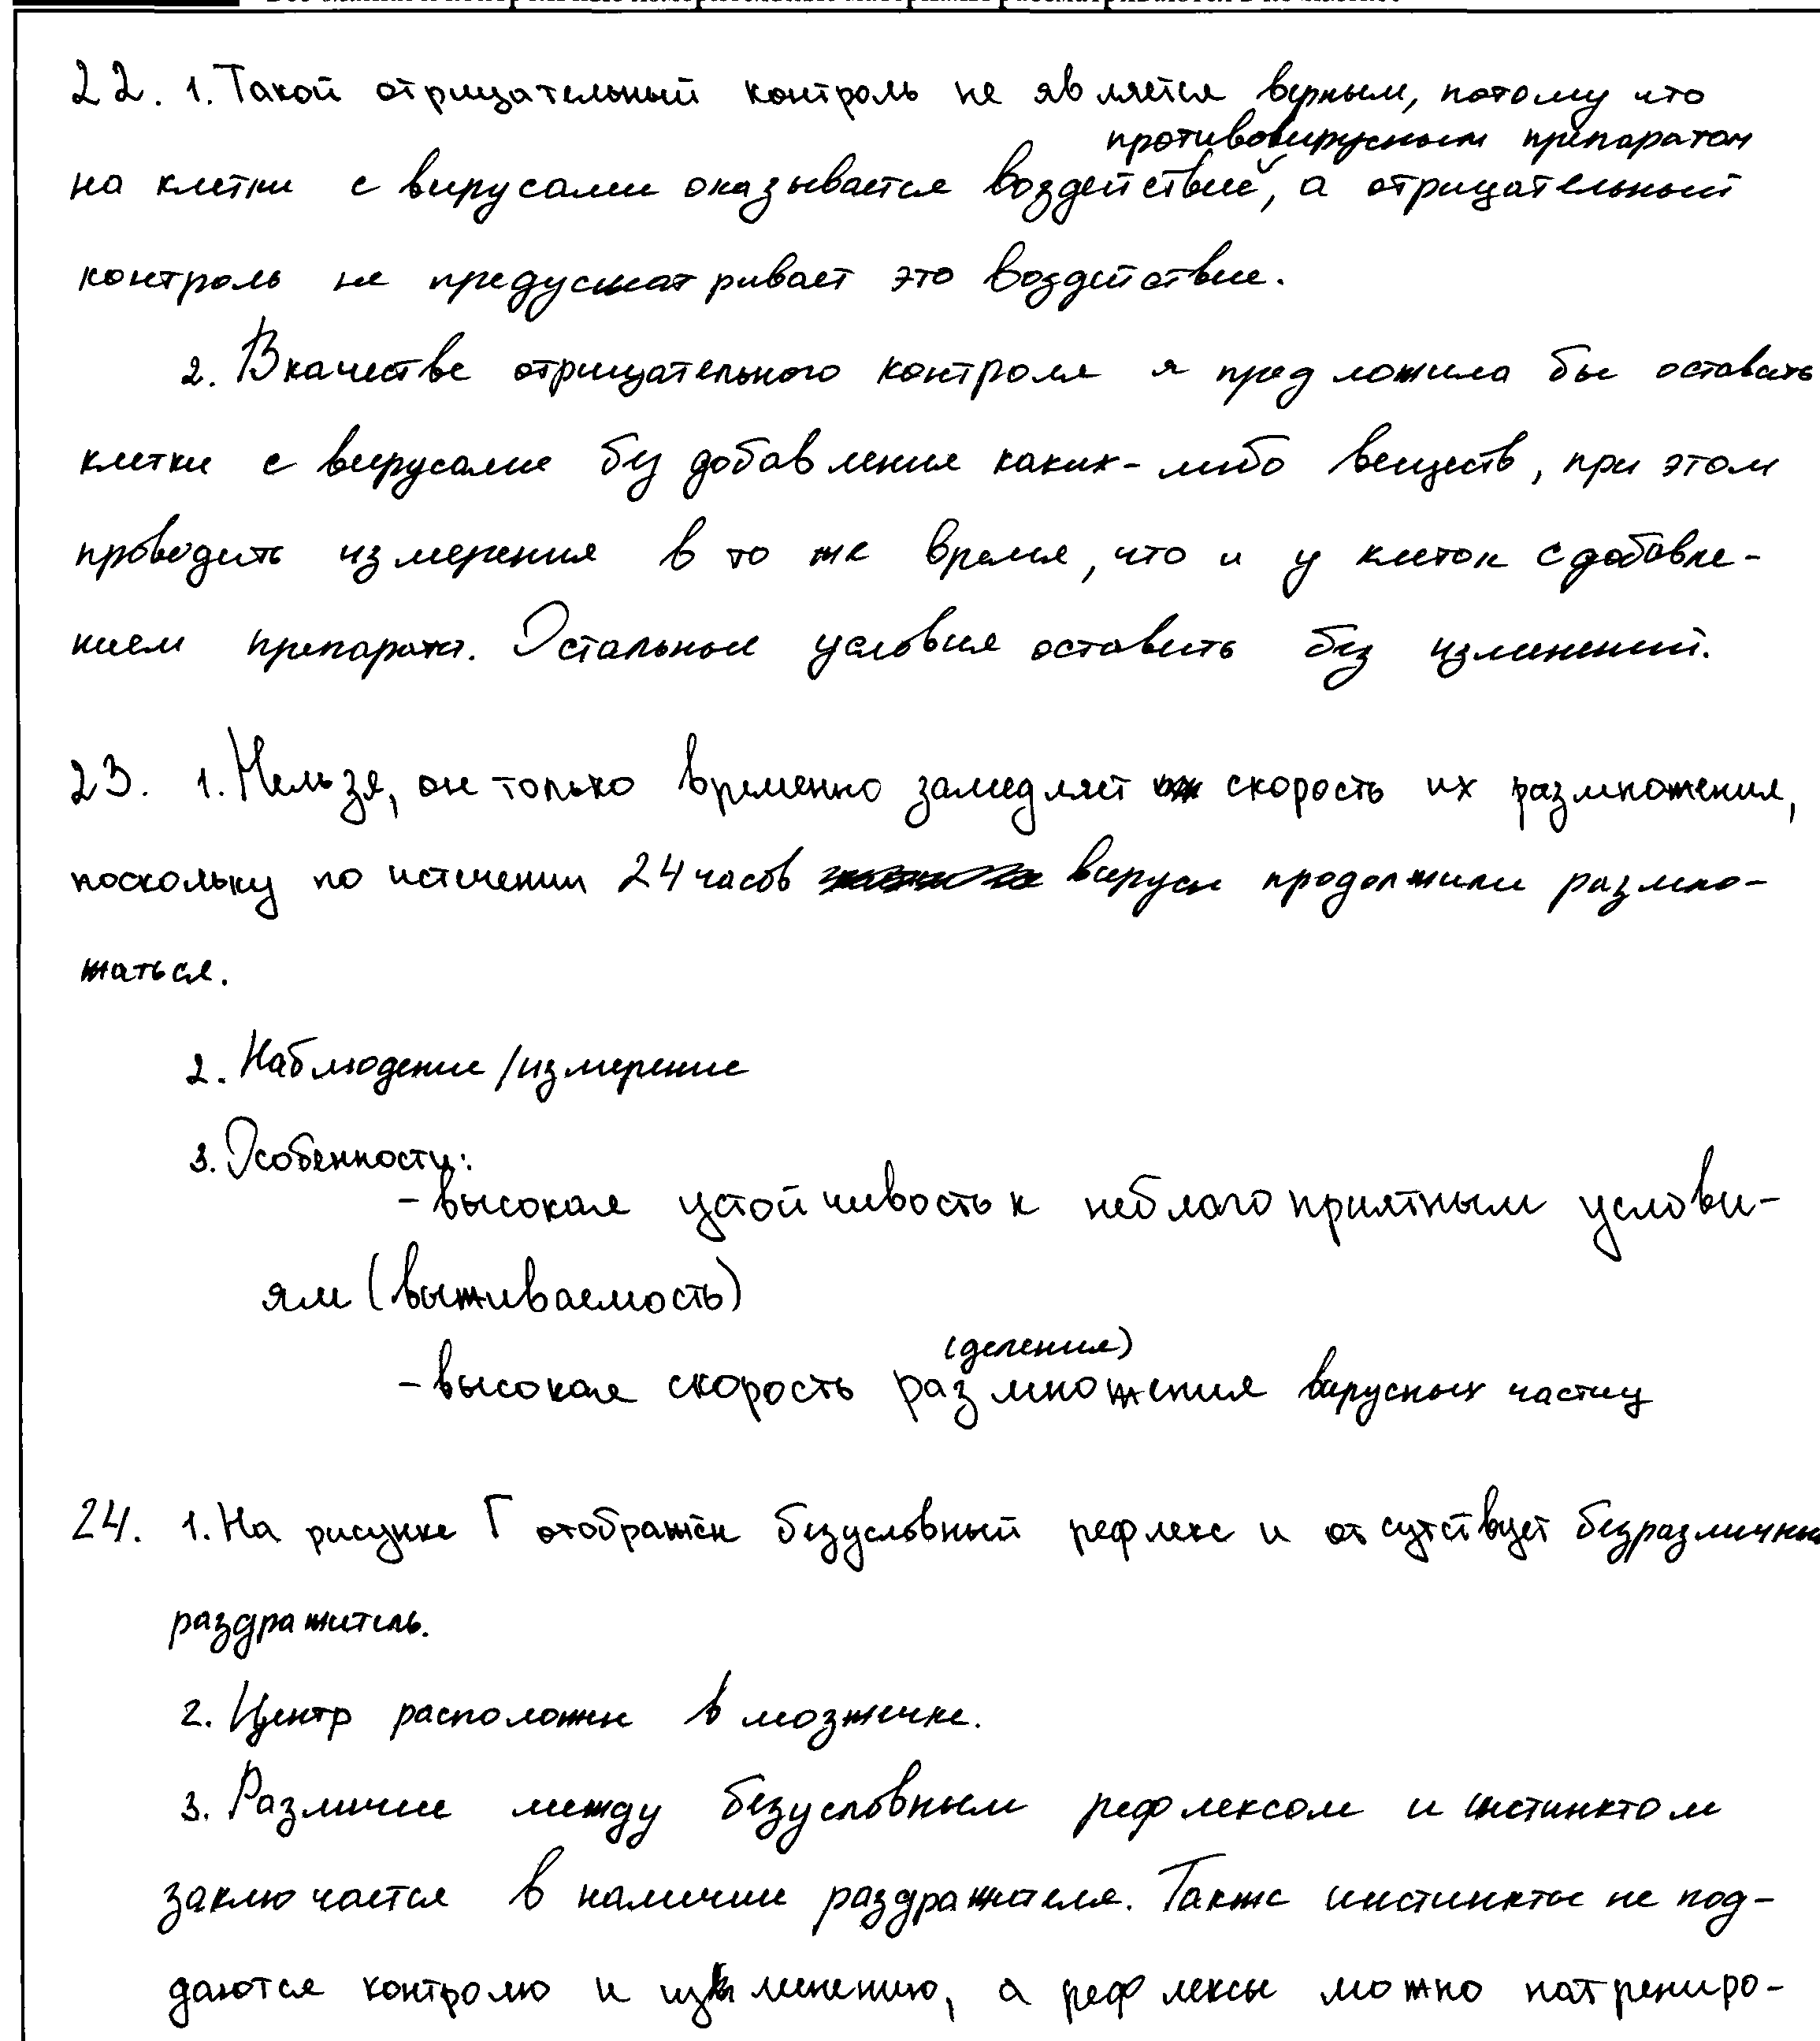 22. 1. Такой отрицательный контроль не является верным, потому что
противовирусным препаратом
на клетки с вирусами оказывается воздействие, а отрицательный
контроль не предусматривает это воздействие.
2. В качестве отрицательного контроля я предложила бы оставить
клетки с вирусами без добавления каких-либо веществ, при этом
проводить измерения в то же время, что и у клеток с добавле-
нием препарата. Остальные условия оставить без изменений.
23. 1. Нельзя, он только временно замедляет скорость их размножения,
поскольку по истечении 24 часов вирусы продолжили размно-
жаться.
2. Наблюдение/измерение
3. Особенности:
- высокая устойчивость к неблагоприятным услови-
ям (выживаемость)
(деления)
- высокая скорость размножения вирусных частиц
24. 1. На рисунке Г отображён безусловный рефлекс и отсутствует безразличный
раздражитель.
2. Центр расположен в мозжечке.
3. Различие между безусловным рефлексом и инстинктом
заключается в наличии раздражителя. Также инстинкты не под-
даются контролю и изменению, а рефлексы можно натрениро-